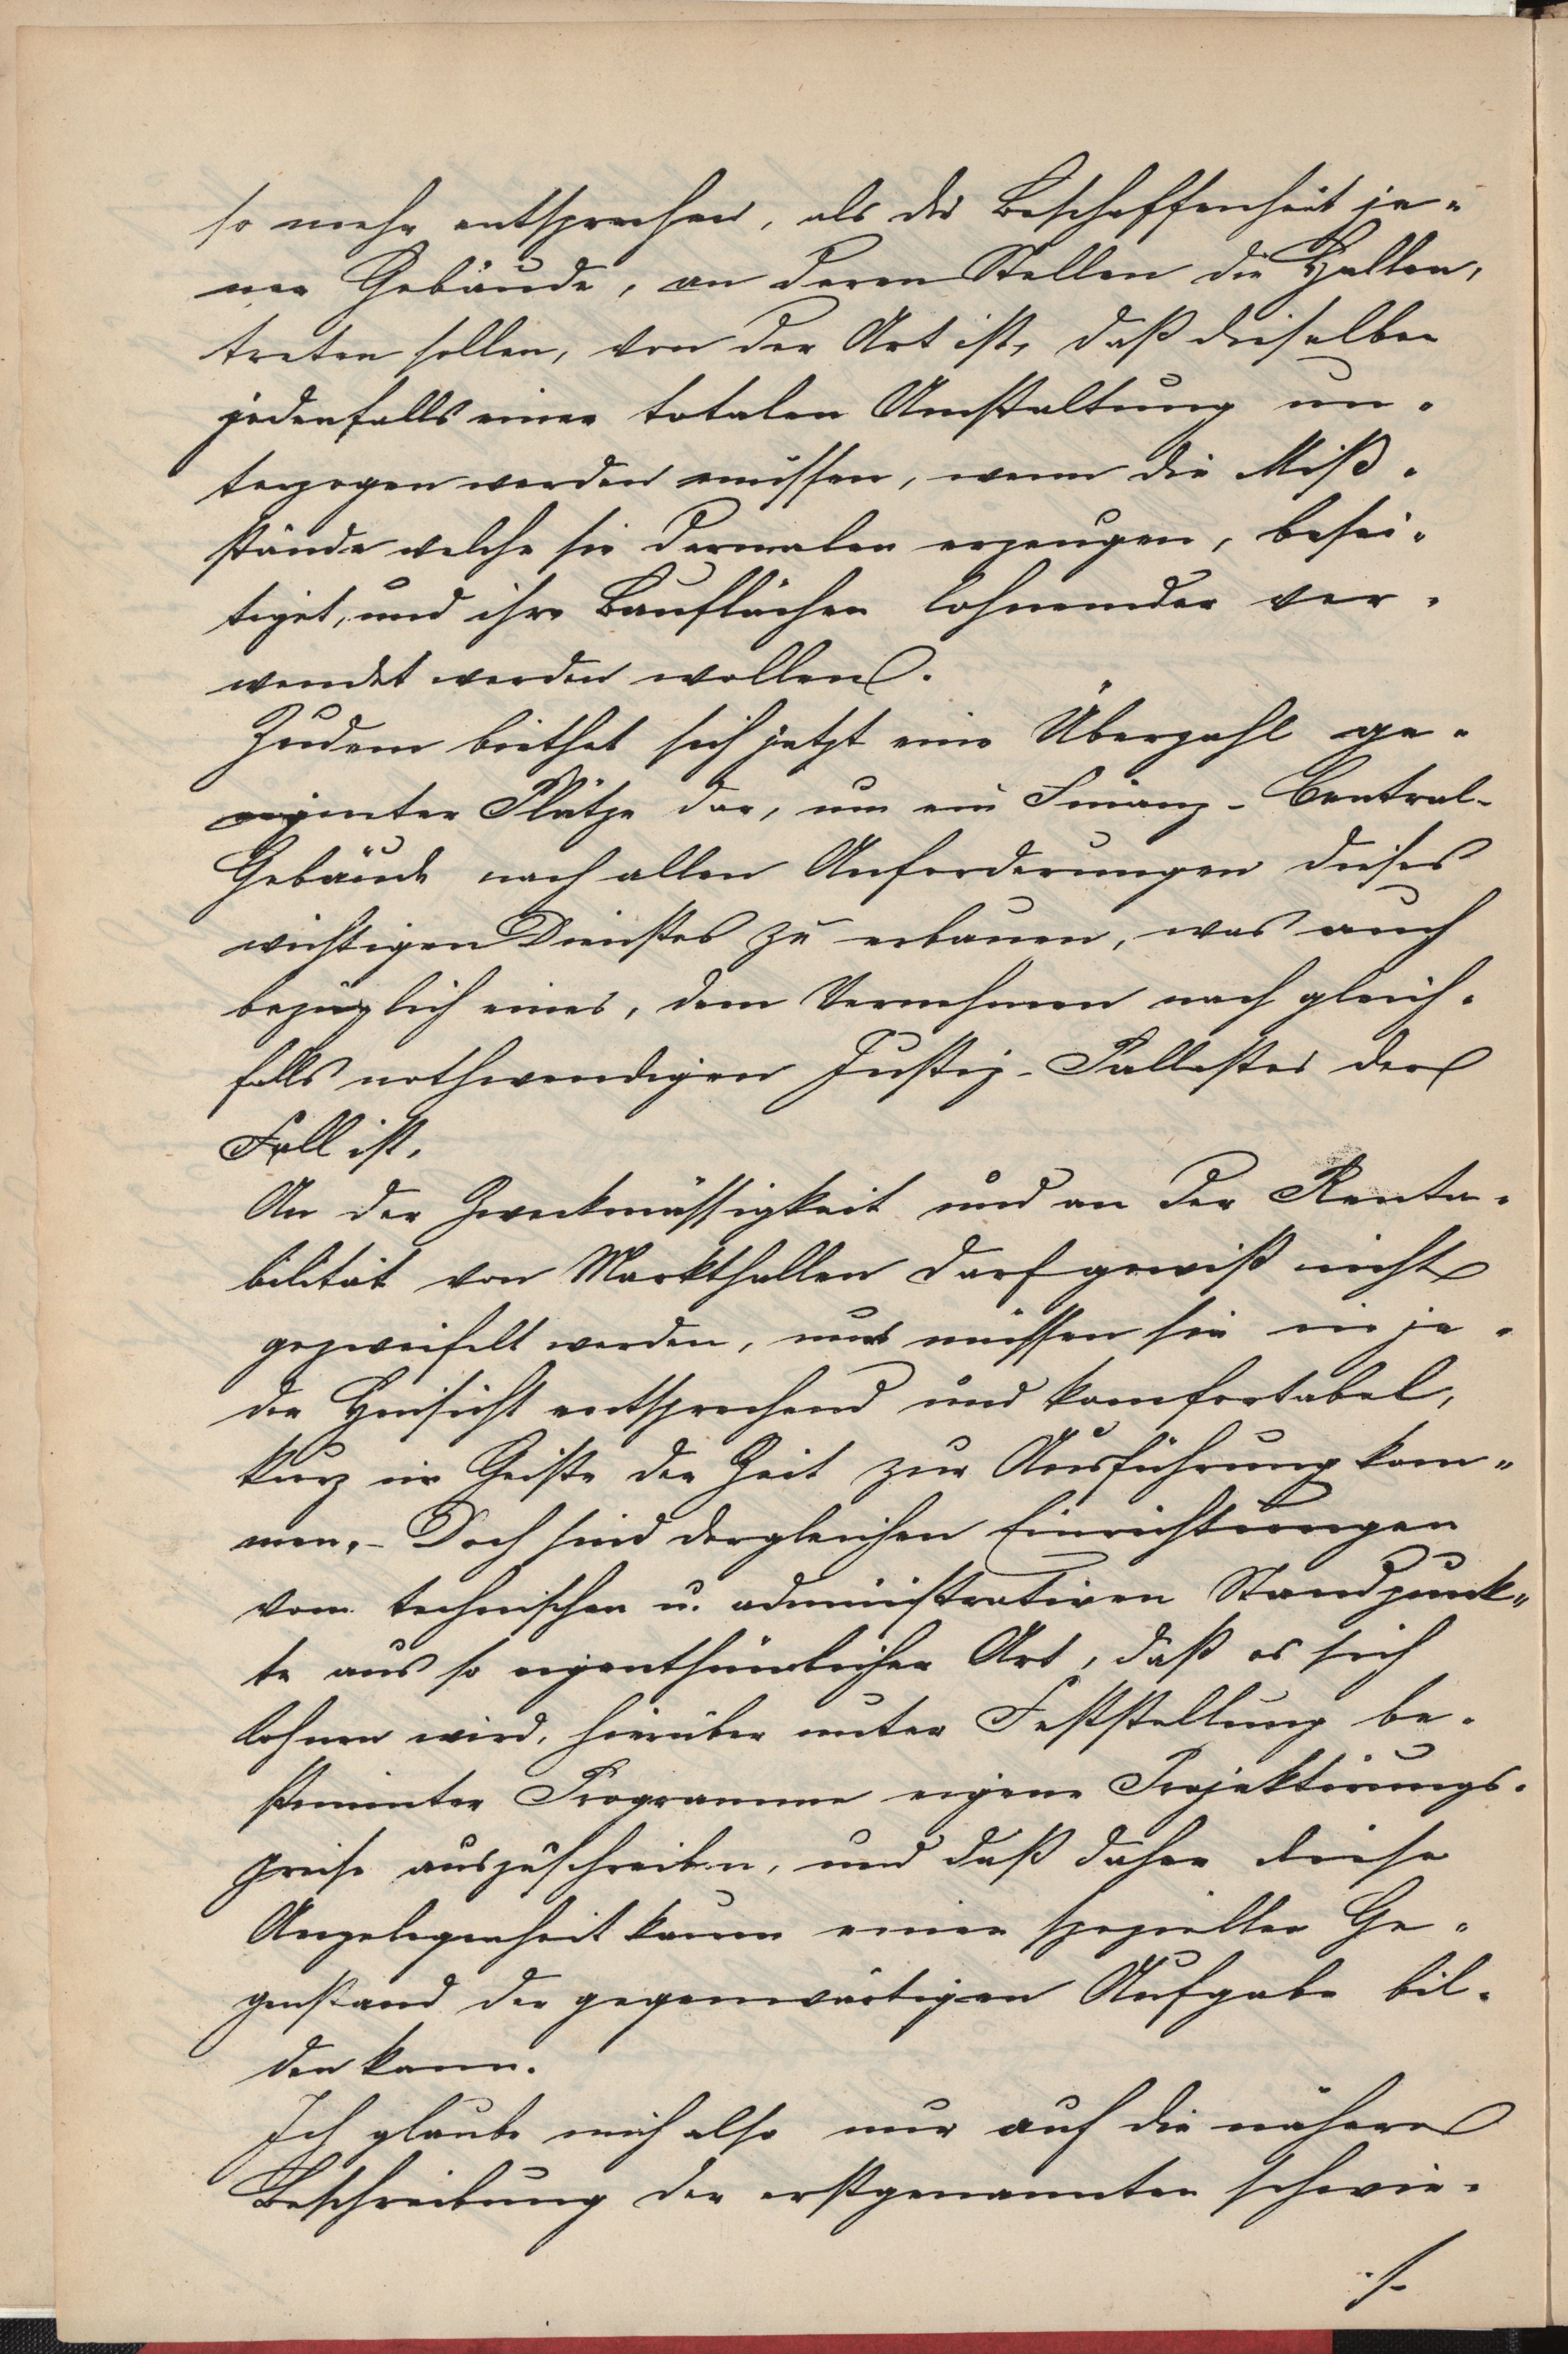 so mehr entsprechen, als die Beschaffenheit je-
ner Gebäude, an deren Stellen die Hallen,
treten sollen, von der Art ist, daß dieselben
jedenfalls einer totalen Umstaltung un-
terzogen werden müssen, wenn die Miß-
stände welche sie dermalen erzeugen, besei-
tiget, und ihre Bauflächen lohnender ver-
wendet werden wollen.
Zudem biethet sich jetzt eine Überzahl ge-
eigneter Plätze dar, um ein Finanz-Central-
Gebäude nach allen Anforderungen dieses
wichtigen Dienstes zu erbauen, was auch
bezüglich eines, dem Vernehmen nach gleich-
falls nothwendigen Justiz-Pallastes der
Fall ist.
An der Zweckmässigkeit und an der Renta-
bilität von Markthallen darf gewiß nicht
gezweifelt werden, nur müssen sie in je-
der Hinsicht entsprechend und komfortabel,
kurz im Geiste der Zeit zur Ausführung kom-
men.- Doch sind dergleichen Einrichtungen
vom technischen u. administrativen Standpunk-
te aus so eigenthümlicher Art, daß es sich
lohnen wird, hierüber unter Feststellung be-
stimmter Programme eigene Projektirungs-
preise auszuschreiben, und daß daher diese
Angelegenheit kaum einen speziellen Ge-
genstand der gegenwärtigen Aufgabe bil-
den kann.
Ich glaube mich also nur auf die nähere
Beschreibung der erstgenannten schwie-
./.